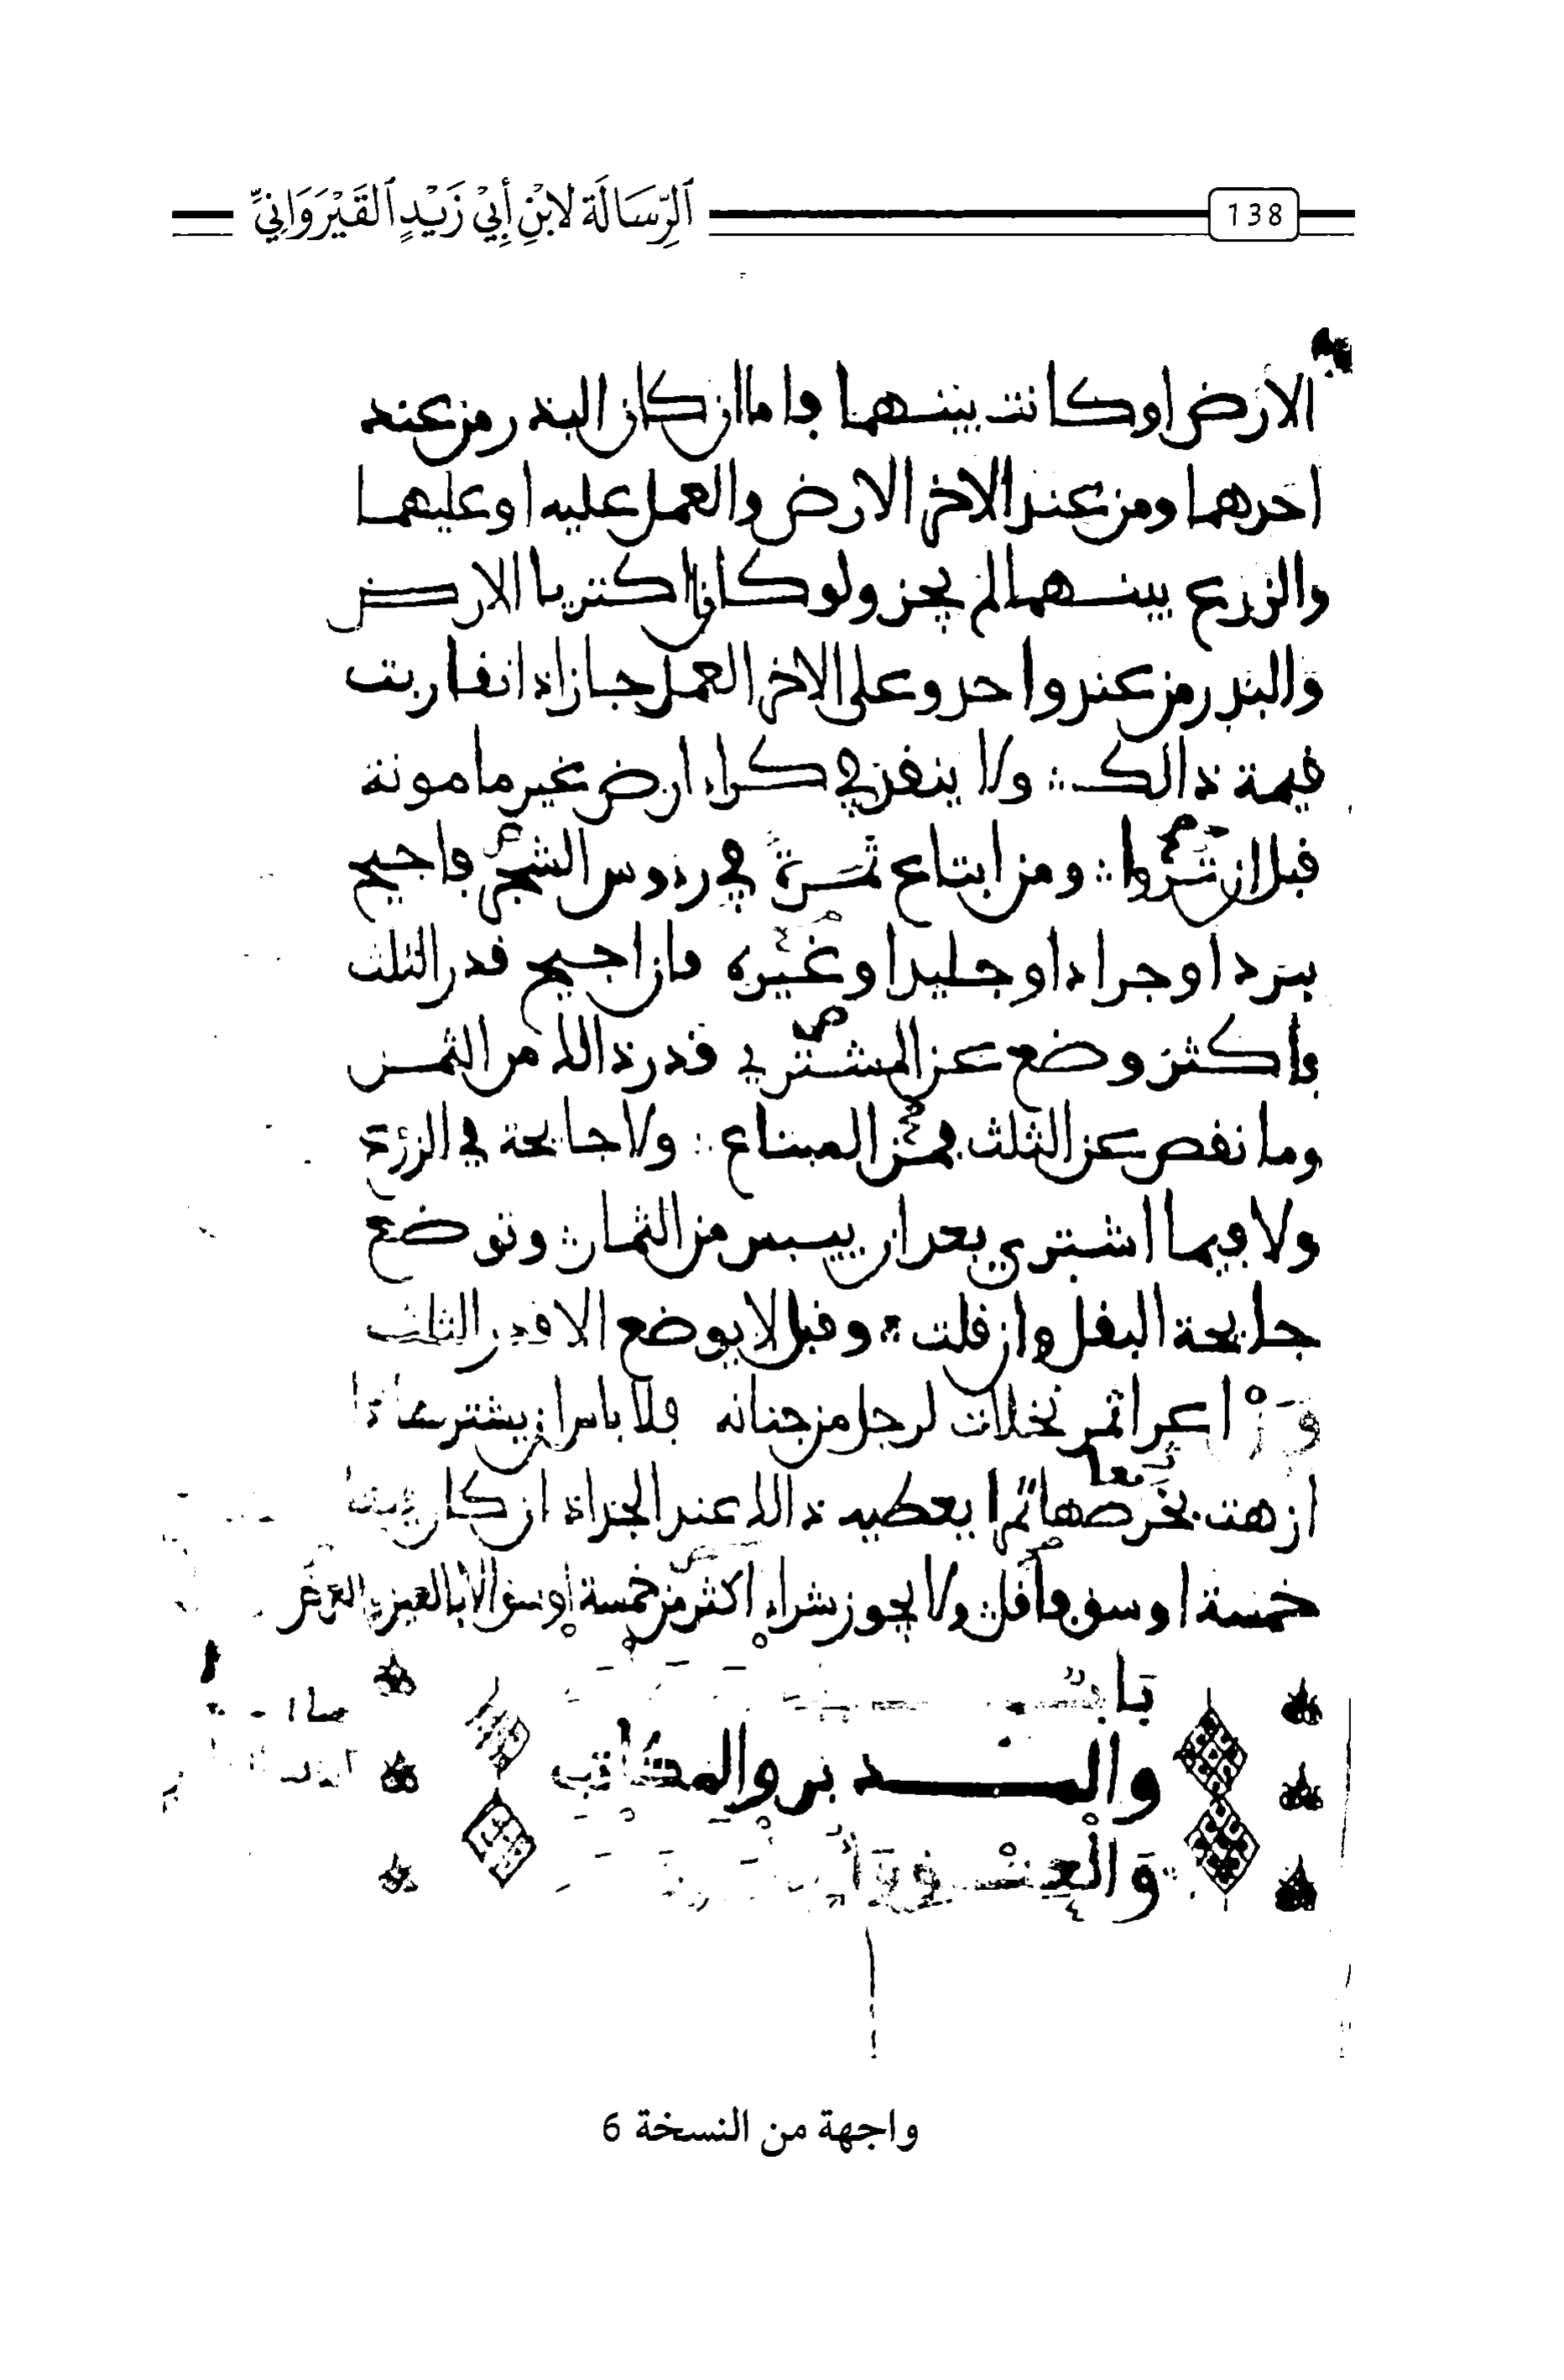 138
الرِّسَالَة لابْنِ أَبِيْ زَيْدٍ القَيْرَوَانِيِّ
الارض او كانت بينهما واما ان كان البذر من عند
احدهما ومن عند الاخر الارض والعمل عليه او عليهما
والزرع بينهما لم يجز ولو كانا اكتريا الارض
والبذر من عند واحد وعلى الاخر العمل جاز اذا تقاربت
قيمة ذالك ولا ينقد في كراء ارض غير مامونة
قبل ان تروا ومن ابتاع ثمرة في رءوس الشجر فاجيح
ببرد او جراد او جليد او غيره فان اجيح قدر الثلث
فاكثر وضع عن المشتري قدر ذالك من الثمن
وما نقص عن الثلث فمن المبتاع ولا جايحة في الزرع
ولا فيما اشتري بعد ان ييبس من الثمار وتوضع
جايحة البقل وان قلت وقيل لا يوضع الا قدر الثلث
ومن اعرا ثمر نخلات لرجل من جنانه فلا باس ان يشتريها اذا
ازهت بخرصها تمرا يعطيه ذالك عند الجذاذ ان كان فيها
خمسة اوسق فاقل ولا يجوز شراء اكثر من خمسة اوسق الا بالعين والعرض
باب
والمدبر والمكاتب
والعتق
واجهة من النسخة 6